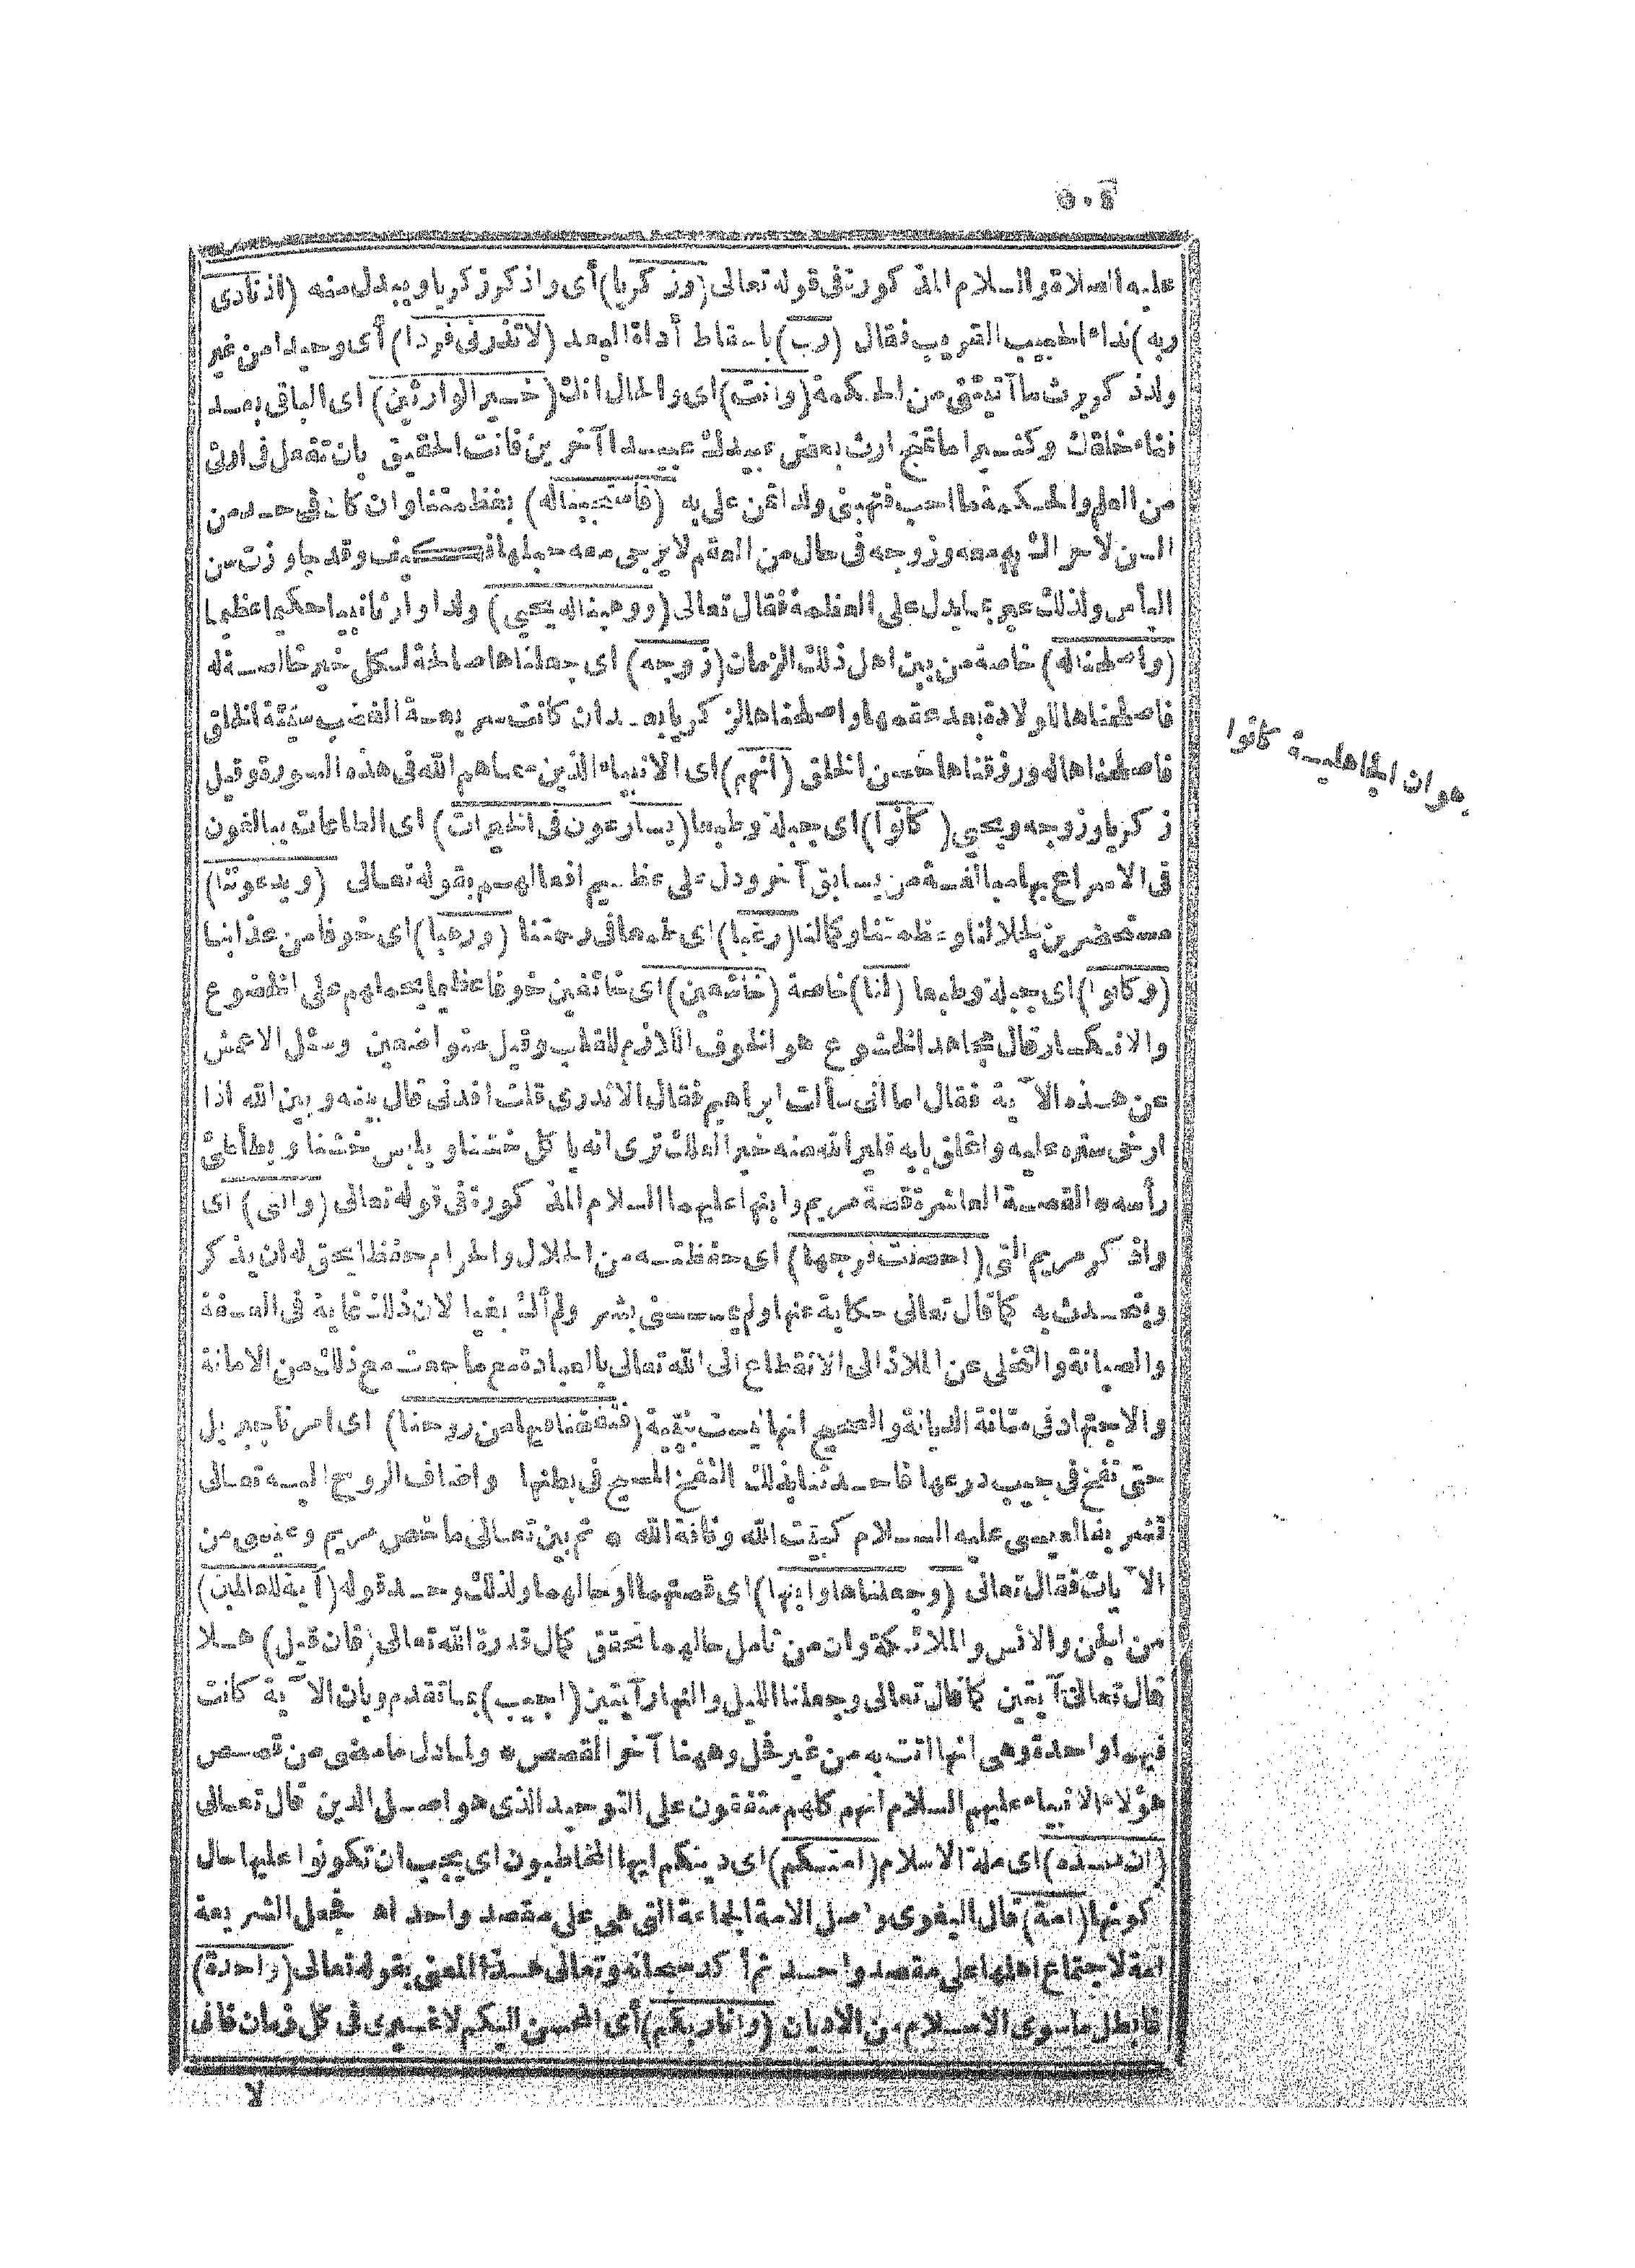 ٥٠٤
عليه الصلاة والسلام المذكورة فى قوله تعالى (وزكريا) أى واذكر زكريا ويبدل منه (اذ نادى
ربه) نداء الحبيب القريب فقال (رب) باسقاط أداة البعد (لا تذرنى فردا) أى وحيدا من غير
ولد ذكر يرث ما آتيتنى من الحكمة (وانت) اى والحال انك (خير الوارثين) اى الباقى بعد
فناء خلقك وكثيرا ما تمنح ارث بعض عبيدك عبيدا آخرين فانت الحقيق بان تفعل فى ارثى
من العلم والحكمة ما احب فتهبنى ولدا تمن على به (فاستجبنا له) بعظمتنا وان كان فى حد من
السن لا حراك به معه وزوجه فى حال من العقم لا يرجى معه حبلها فكيف وقد جاوزت سن
اليأس ولذلك عبر بما يدل على العظمة فقال تعالى (ووهبنا له يحيى) ولدا وارثا نبيا حكيما عظيما
(واصلحنا له) خاصة من بين اهل ذلك الزمان (زوجه) اى جعلناها صالحة لكل خير خالصة له
فاصلحناها للولادة بعد عقمها واصلحناها لزكريا بعد ان كانت سريعة الغضب سيئة الخلق
فاصلحناها له ورزقناها حسن الخلق (انهم) اى الانبياء الذين سماهم الله فى هذه السورة وقيل
زكريا وزوجه ويحيى (كانوا) اى جبلة وطبعا (يسارعون فى الخيرات) اى الطاعات يبالغون
فى الاسراع بها مبالغة من يسابق آخر ودل على عظيم افعالهم بقوله تعالى (ويدعوننا)
مستحضرين لجلالنا وعظمتنا وكمالنا (رغبا) اى طمعا فى رحمتنا (ورهبا) اى خوفا من عذابنا
(وكانوا) اى جبلة وطبعا (لنا) خاصة (خاشعين) اى خائفين خوفا عظيما يحملهم على الخضوع
والانكسار قال مجاهد الخشوع هو الخوف اللازم للقلب وقيل متواضعين وسئل الاعمش
عن هذه الآية فقال اما انى سألت ابراهيم فقال الا تدرى قلت افدنى قال بينه وبين الله اذا
ارخى ستره عليه واغلق بابه فلير الله منه خيرا لعلك ترى انه ياكل خشنا ويلبس خشنا ويطأطئ
رأسه * القصة العاشرة قصة مريم وابنها عليهما السلام المذكورة فى قوله تعالى (والتى) اى
واذكر مريم التى (احصنت فرجها) اى حفظته من الحلال والحرام حفظا يحق له ان يذكر
ويتحدث به كما قال تعالى حكاية عنها ولم يمسسنى بشر ولم أك بغيا لان ذلك غاية فى العفة
والصيانة والتخلى عن الملاذ الى الانقطاع الى الله تعالى بالعبادة مع ما جمعت مع ذلك من الامانة
والاجتهاد فى متانة الديانة والصحيح انها ليست بنبية (فنفخنا فيها من روحنا) اى امرنا جبريل
حتى نفخ فى جيب درعها فاحدثنا بذلك النفخ المسيح فى بطنها واضاف الروح اليه تعالى
تشريفا لعيسى عليه السلام كبيت الله وناقة الله * ثم بين تعالى ما خص مريم وعيسى من
الآيات فقال تعالى (وجعلناها وابنها) اى قصتهما او حالهما ولذلك وحد قوله (آية للعالمين)
من الجن والانس والملائكة وان من تأمل حالهما تحقق كمال قدرة الله تعالى (فان قيل) هلا
قال تعالى آيتين كما قال تعالى وجعلنا الليل والنهار آيتين (اجيب) بما تقدم وبان الآية كانت
فيهما واحدة وهى انها اتت به من غير فحل وههنا آخر القصص * ولما دل ما مضى من قصص
هؤلاء الانبياء عليهم السلام انهم كلهم متفقون على التوحيد الذى هو اصل الدين قال تعالى
(ان هذه) اى ملة الاسلام (امتكم) اى دينكم ايها المخاطبون اى يجب ان تكونوا عليها حال
كونها (امة) قال البغوى واصل الامة الجماعة التى هى على مقصد واحد اه فجعل الشريعة
امة لاجتماع اهلها على مقصد واحد ثم أكد سبحانه وتعالى هذا المعنى بقوله تعالى (واحدة)
فابطل ما سوى الاسلام من الاديان (وانا ربكم) أى المحسن اليكم لا غيرى فى كل زمان فانى
لا
بهوان الجاهلية كانوا